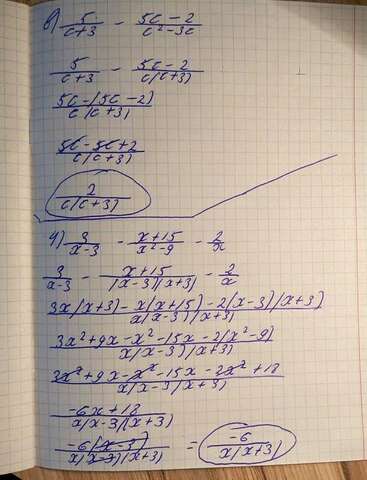 в) 5/(c+3) - (5c-2)/(c²-3c)
5/(c+3) - (5c-2)/(c(c+3))
(5c-(5c-2))/(c(c+3))
(5c-5c+2)/(c(c+3))
2/(c(c+3))
4) 3/(x-3) - (x+15)/(x²-9) - 2/x
3/(x-3) - (x+15)/((x-3)(x+3)) - 2/x
(3x(x+3)-x(x+15)-2(x-3)(x+3))/(x(x-3)(x+3))
(3x²+9x-x²-15x-2(x²-9))/(x(x-3)(x+3))
(3x²+9x-x²-15x-2x²+18)/(x(x-3)(x+3))
(-6x+18)/(x(x-3)(x+3))
(-6(x-3))/(x(x-3)(x+3)) = -6/(x(x+3))